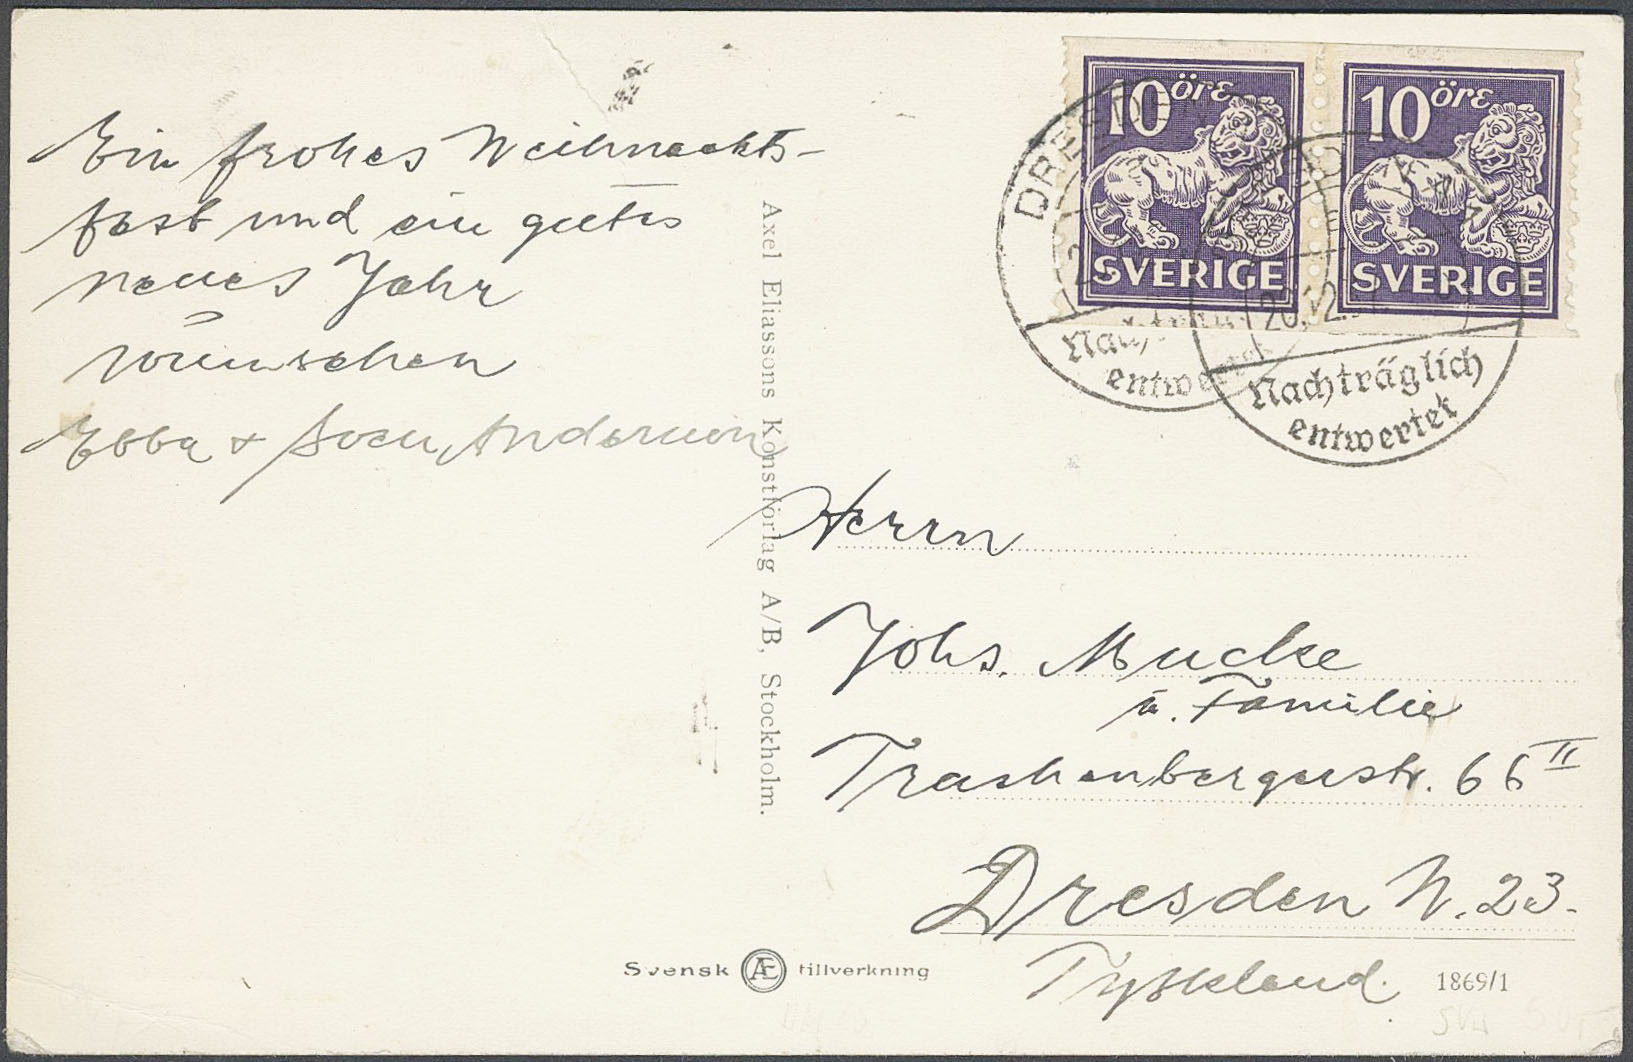 Ein frohes Weihnachts-
fest und ein gutes
neues Jahr
wünschen
Ebba & Sven Andersson
Axel Eliassons Konstförlag A/B, Stockholm.
10 öre
SVERIGE
10 öre
SVERIGE
DRESDEN
Nachträglich
entwertet
20.12.
Nachträglich
entwertet
Herrn
Johs. Mucke
u. Familie
Trachenbergerstr. 66 II
Dresden N. 23.
Tyskland.
Svensk Æ tillverkning
1869/1